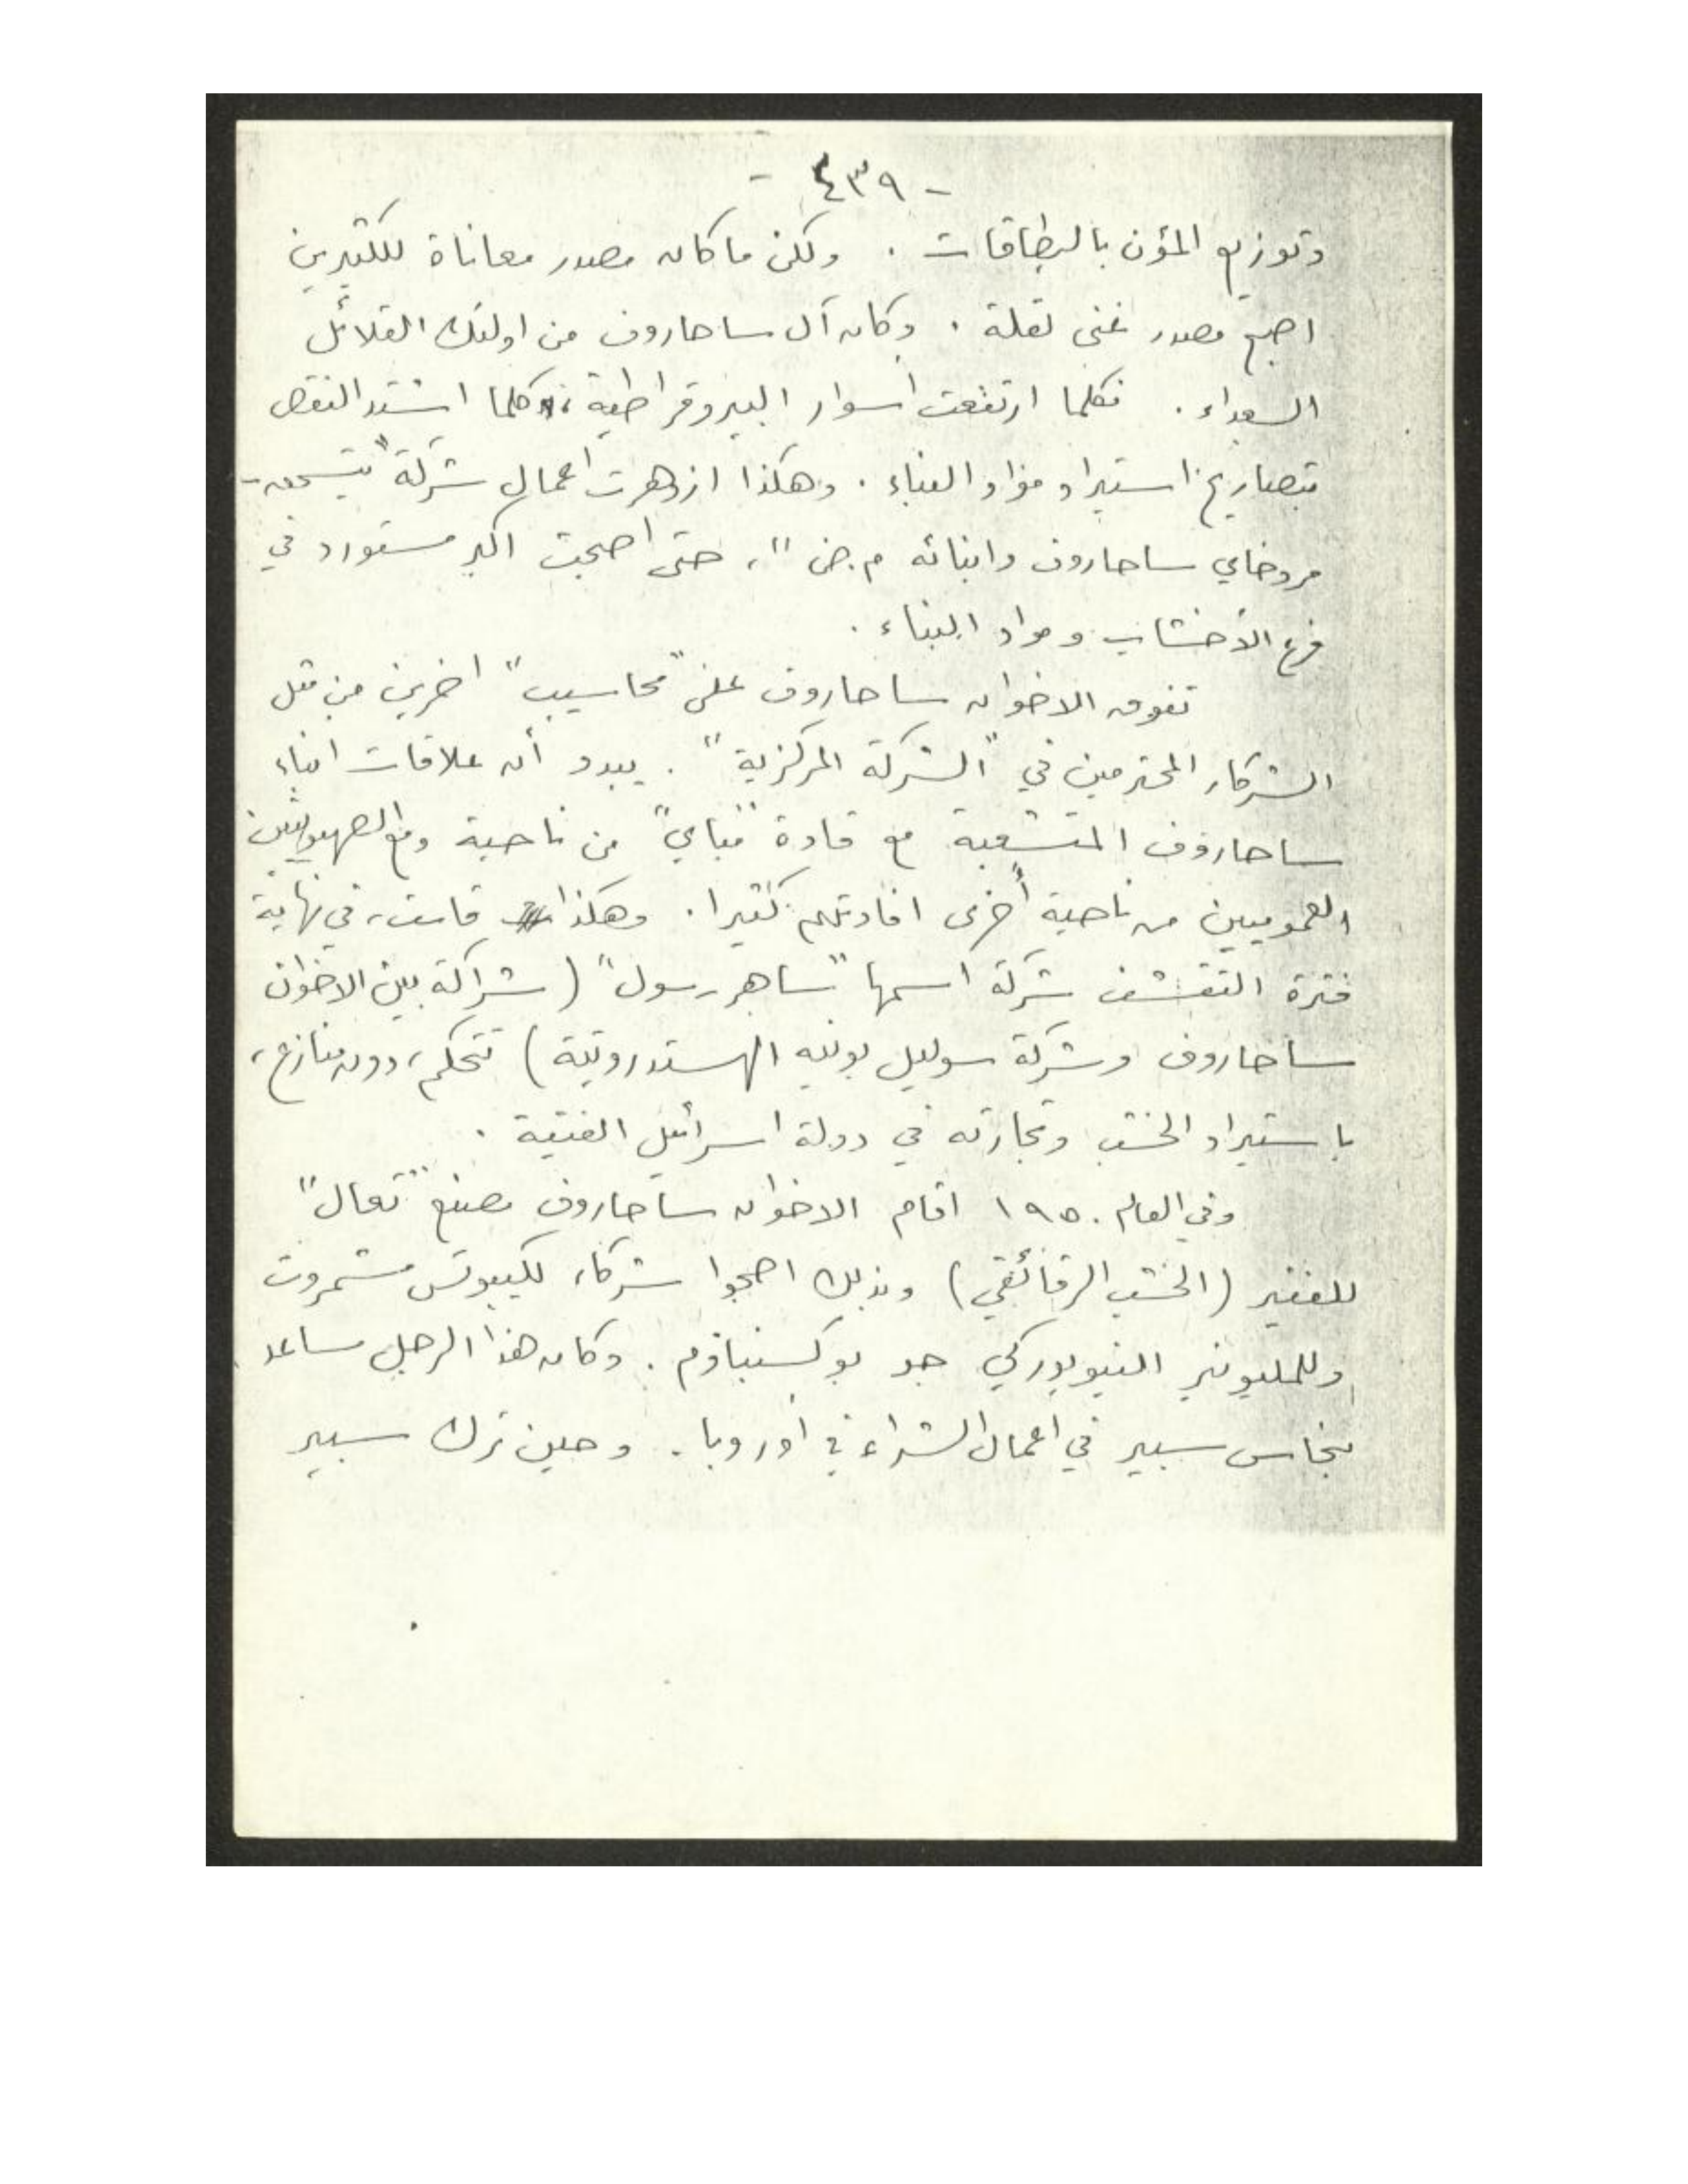 - ٤٣٩ -
وتوزيع المؤن بالبطاقات . ولكن ما كان مصدر معاناة للكثيرين
اصبح مصدر غنى لقلة . وكان آل ساحاروف من اولئك القلائل
السعداء . فكلما ارتفعت أسوار البيروقراطية، كلما اشتد النقص
بتصاريح استيراد مواد البناء . وهكذا ازدهرت اعمال شركة "يتسحق-
مردخاي ساحاروف وابنائه م.ض"، حتى اصبحت اكبر مستورد في
فرع الأخشاب ومواد البناء .
تفوق الاخوان ساحاروف على "محاسيب" اخرين من مثل
الشركاء المحترمين في "الشركة المركزية" . يبدو أن علاقات ابناء
ساحاروف المتشعبة مع قادة "مباي" من ناحية ومع الصهيونيين
العموميين من ناحية أخرى افادتهم كثيرا . وهكذا قامت، في نهاية
فترة التقشف شركة اسمها "ساهر سول" (شراكة بين الاخوان
ساحاروف وشركة سوليل بونيه الهستدروتية) تتحكم، دون منازع،
باستيراد الخشب وتجارته في دولة اسرائيل الفتية .
وفي العام ١٩٥٠ اقام الاخوان ساحاروف مصنع "تعال"
للفنير (الخشب الرقائقي) وبذلك اصبحوا شركاء لكيبوتس مشمروت
وللمليونير النيويوركي جو بوكسنباوم . وكان هذا الرجل مساعد
بنحاس سبير في اعمال الشراء في أوروبا . وحين ترك سبير